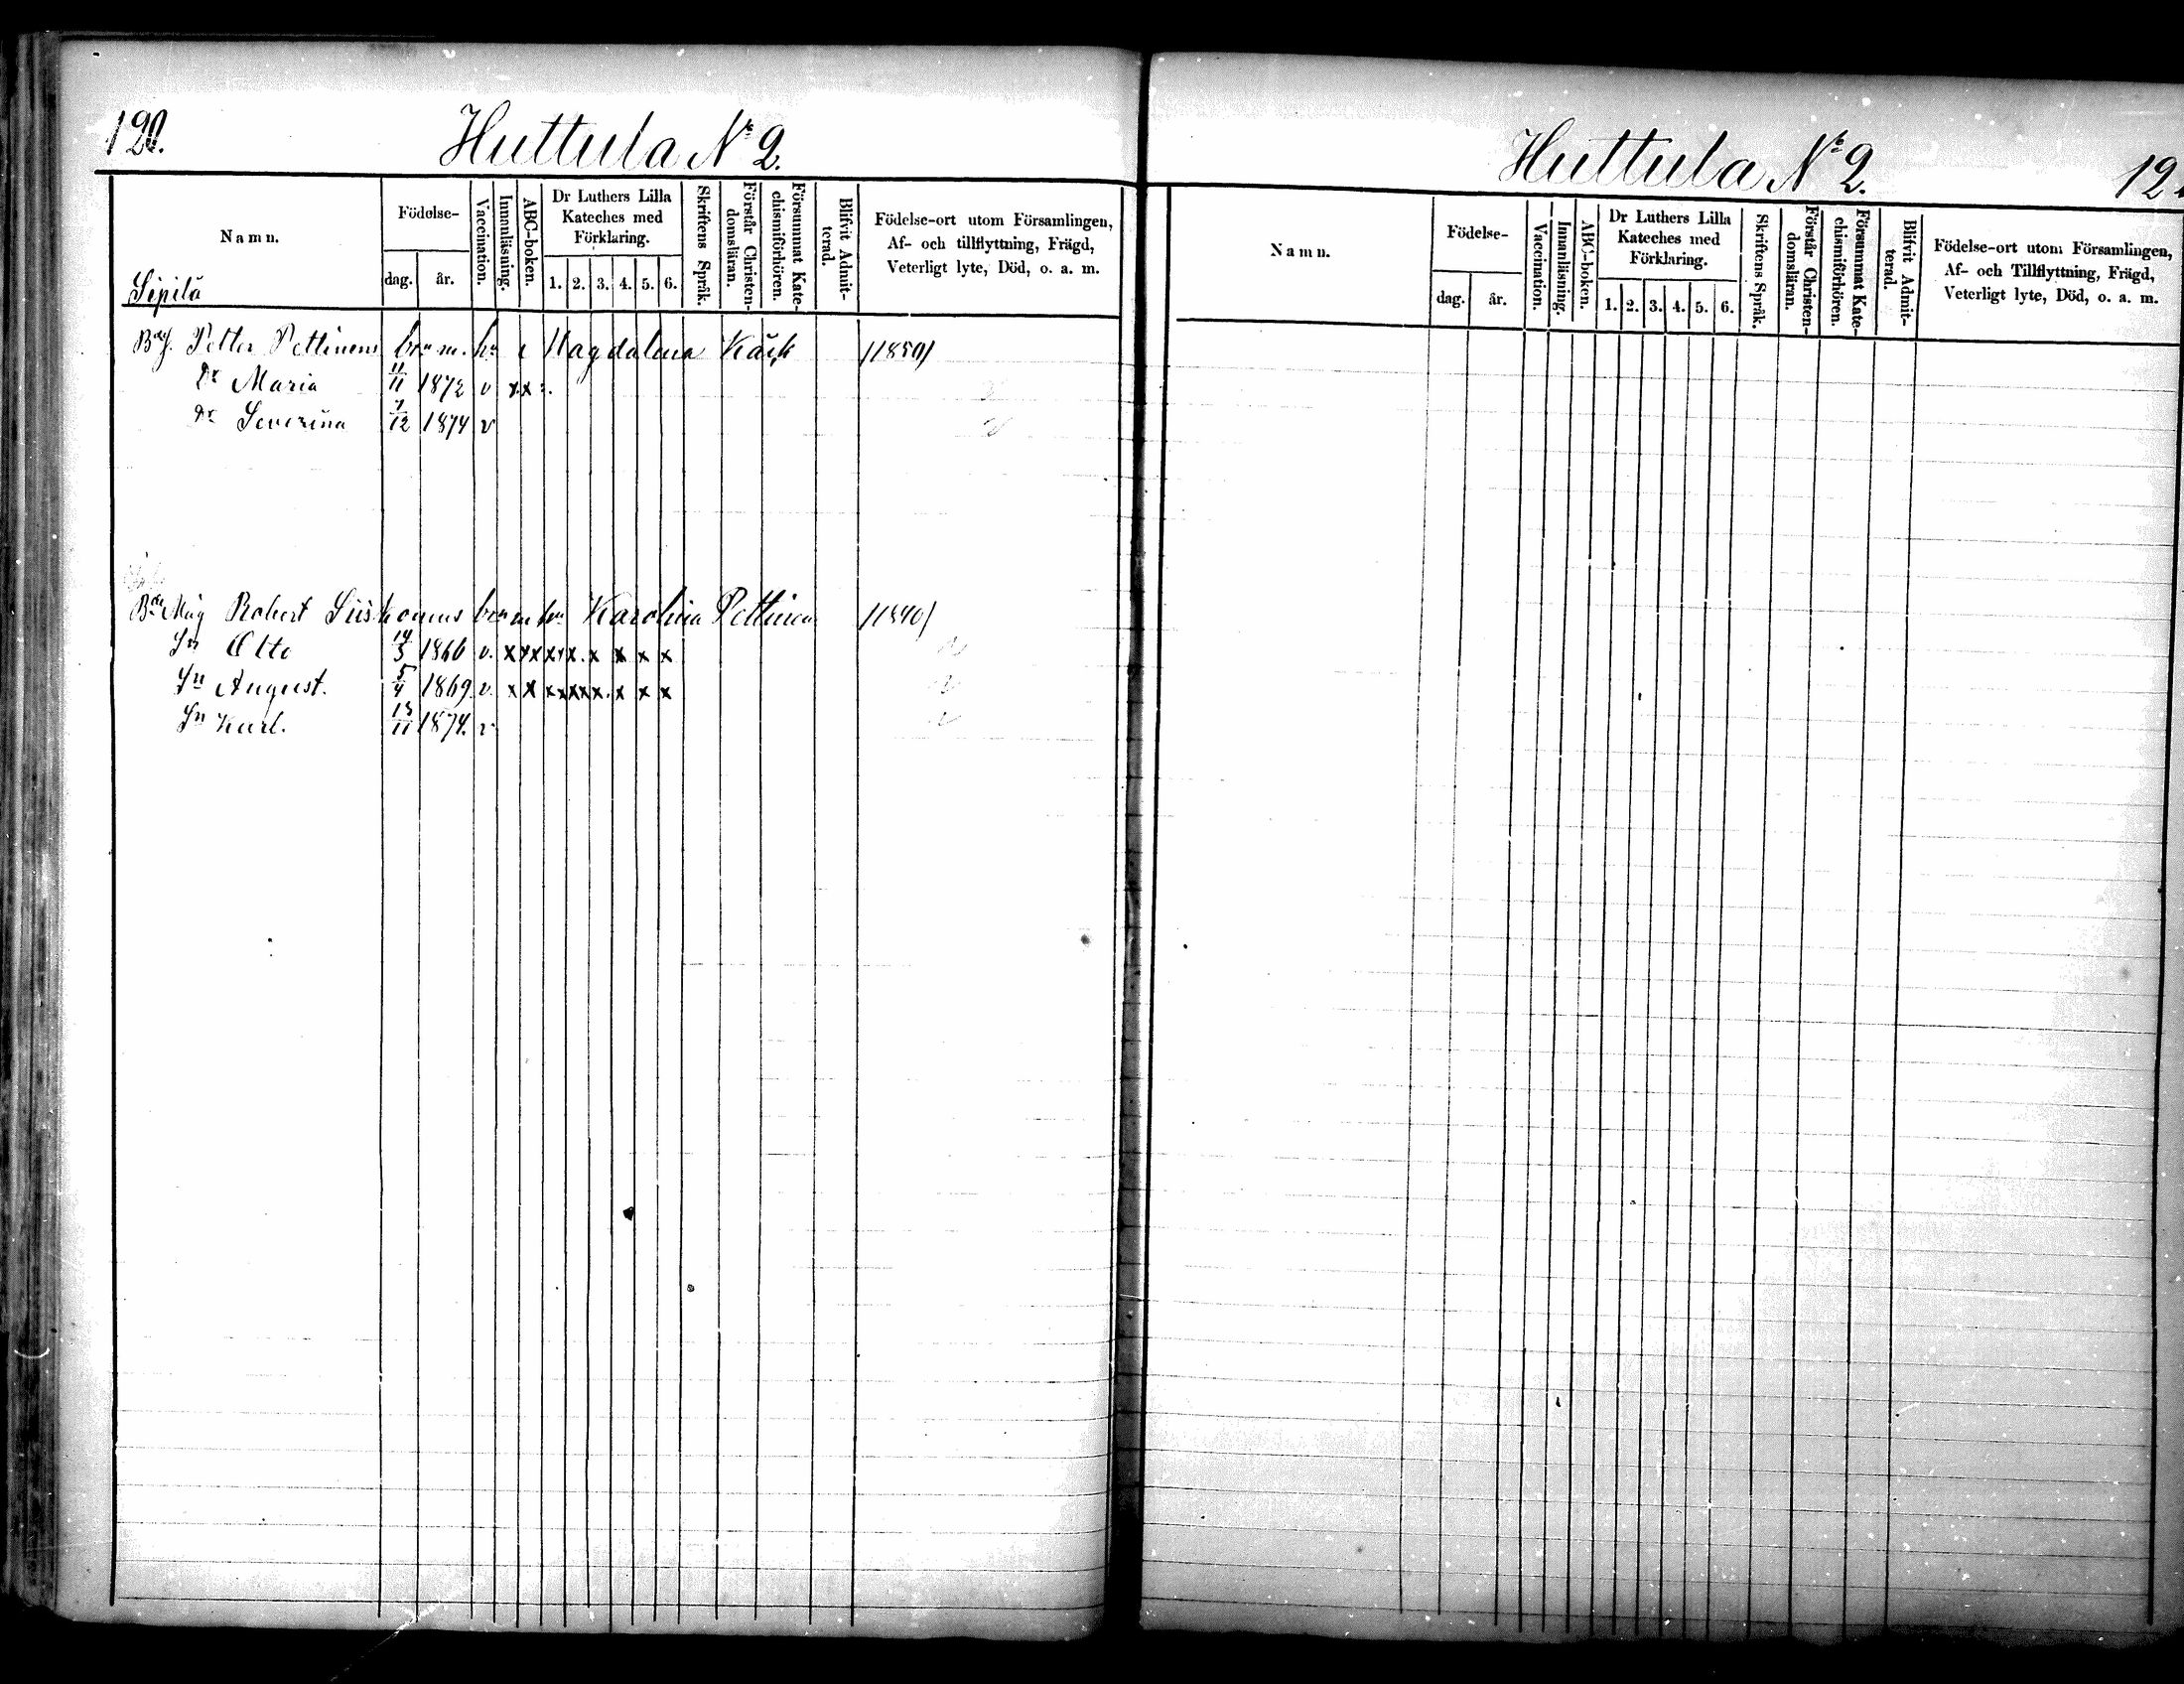 120.
Huttula No 2.
Namn.
Födelse-
dag. år.
Vaccination.
Innanläsning.
ABC-boken.
Dr Luthers Lilla
Kateches med
Förklaring.
1. 2. 3. 4. 5. 6.
Skriftens Språk.
Förstår Christen-
domsläran.
Försummat Kate-
chismiförhören.
Blifvit Admit-
terad.
Födelse-ort utom Församlingen,
Af- och tillflyttning, Frägd,
Veterligt lyte, Död, o. a. m.
Sipilä
Petter Pettinens Magdalena /1850/
Dr Maria 11/11 1872 v x x
Dr Severina 7/12 1874 v
Robert Karolina Pettinen /1840/
Sn Otto 14/3 1866 v. x x x x x x. x x x x
Sn August. 5/4 1869 v. x x x x x x x. x x x
Sn Karl. 13/11 1874. v
Huttula No 2.
Namn.
Födelse-
dag. år.
Vaccination.
Innanläsning.
ABC-boken.
Dr Luthers Lilla
Kateches med
Förklaring.
1. 2. 3. 4. 5. 6.
Skriftens Språk.
Förstår Christen-
domsläran.
Försummat Kate-
chismiförhören.
Blifvit Admit-
terad.
Födelse-ort utom Församlingen,
Af- och Tillflyttning, Frägd,
Veterligt lyte, Död, o. a. m.